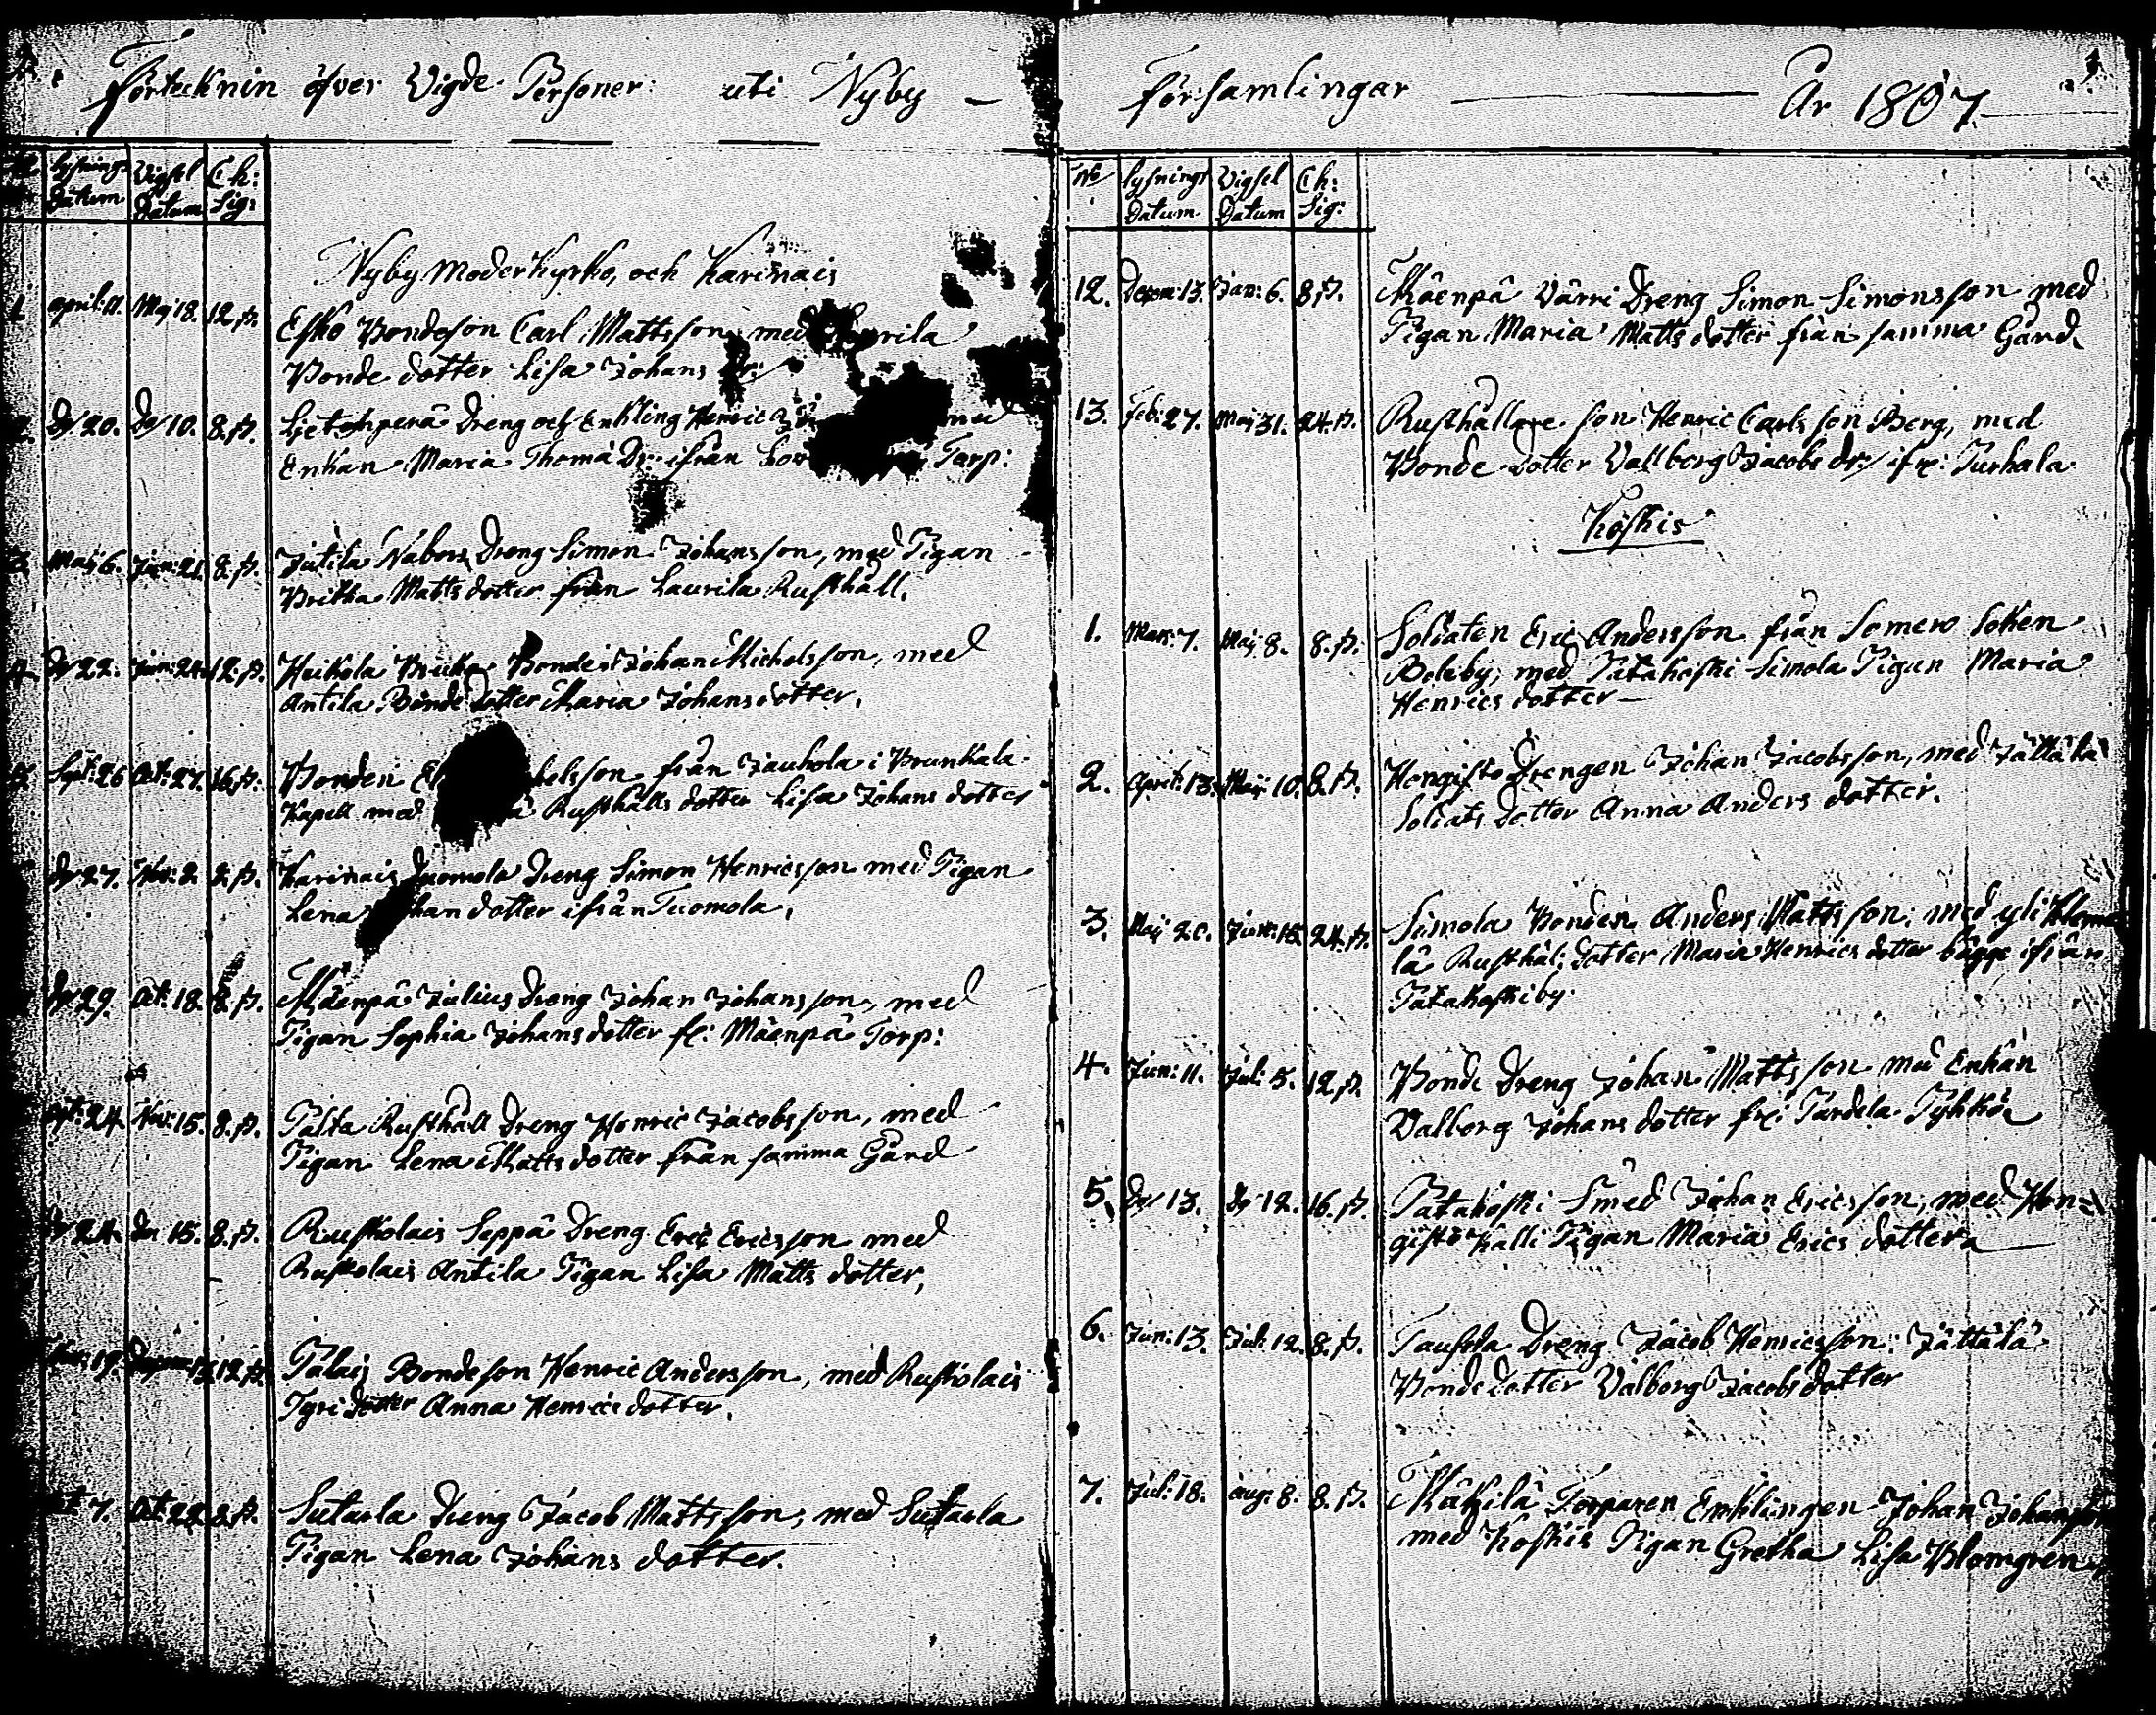 Förtecknin öfver Vigde Personer uti Nyby —
Lysnings Datum Vigsel Datum Ch: Sig:
Nyby Moderkyrko, och Karinais
1 April: 11. Maj 18. 12 β. Esko Bondeson Carl Mattsson, med
Bonde dotter Lisa Johans Dr:
Do 20. Do 10. 8. β. Dreng och Enkling Henric med
Enkan Maria Thomä Dr: ifrån Torp:
3 Maij 6. Jun: 21. 8. β. Jutila Nabors Dreng Simon Johansson, med Pigan
Britha Matts dotter från Laurila Rusthåll.
4 Do 22. Jun: 24. 12. β. Heikola Bonden Johan Michelsson, med
Antila Bonde dotter Maria Johansdotter.
Sept: 26 Oct: 27. 16. β. Bonden från Jauhola i Brunkala
Kapell med Rusthålls dotter Lisa Johans dotter
Do 27. Nov: 2. β. Karinais Dreng Simon Henricsson med Pigan
Lena dotter ifrån Tuomola.
Do 29. Oct: 18. 8. β. Mäenpä Julius Dreng Johan Johansson, med
Pigan Sophia Johansdotter fr: Mäenpä Torp:
24. Nov: 15. 8. β. Palta Rusthåll Dreng Henric Jacobsson, med
Pigan Lena Matts dotter från samma Gård
Do 24. Do 15. 8. β. Ruskolais Seppä Dreng Eric Ericsson med
Ruskolais Antila Pigan Lisa Matts dotter,
19. 12 β. Palais Bondeson Henric Andersson, med Ruskolais
dotter Anna Henrics dotter.
7. Oct: 22. 8. β. Sutarla Dreng Jacob Mattsson, med Sutarla
Pigan Lena Johans dotter.
Församlingar — År 1807
No Lysnings datum Vigsel Datum Ch: Sig:
12. Decem: 13. Jan: 6. 8 β. Mäenpä Värri Dreng Simon Simonsson med
Pigan Maria Matts dotter från samma Gård.
13. Feb: 27. Maij 31. 24. β. Rusthållare son Henric Carlsson Berg, med
Bonde dotter Vallborg Jacobs dr: ifr: Turhala
Koskis
1. Mar: 7. Maij 8. 8. β. Soldaten Eric Andersson från Somero Soken
med Patakoski Simola Pigan Maria
Henrics dotter —
2. April: 13. Maij 10. 8. β. Hongisto Drengen Johan Jacobsson, med Jättälä
Soldats dotter Anna Anders dotter.
3. Maij 20. 24. β. Simola Bonden Anders Mattsson; med yli
lä Rusthål: dotter Maria Henrics dotter bägge ifrån
Patakoskiby.
4. Jun: 11. Jul: 5. 12. β. Bonde Dreng Johan Mattsson med Enkan
Valborg Johans dotter fr: Tardela
5. Do 13. Do 12. 16. β. Patakoski Smed Johan Ericsson, med Hon=
gisto Kalli Pigan Maria Erics dotter
6. Jun: 13. Jul: 12. 8. β. Dreng Jacob Henricsson: Jättälä
Bonde dotter Valborg Jacobs dotter
7. Jul: 18. Aug: 8. 8. β. Mäkilä Torparen Enklingen Johan
med Koskis Pigan Gretha Lisa Blomgren